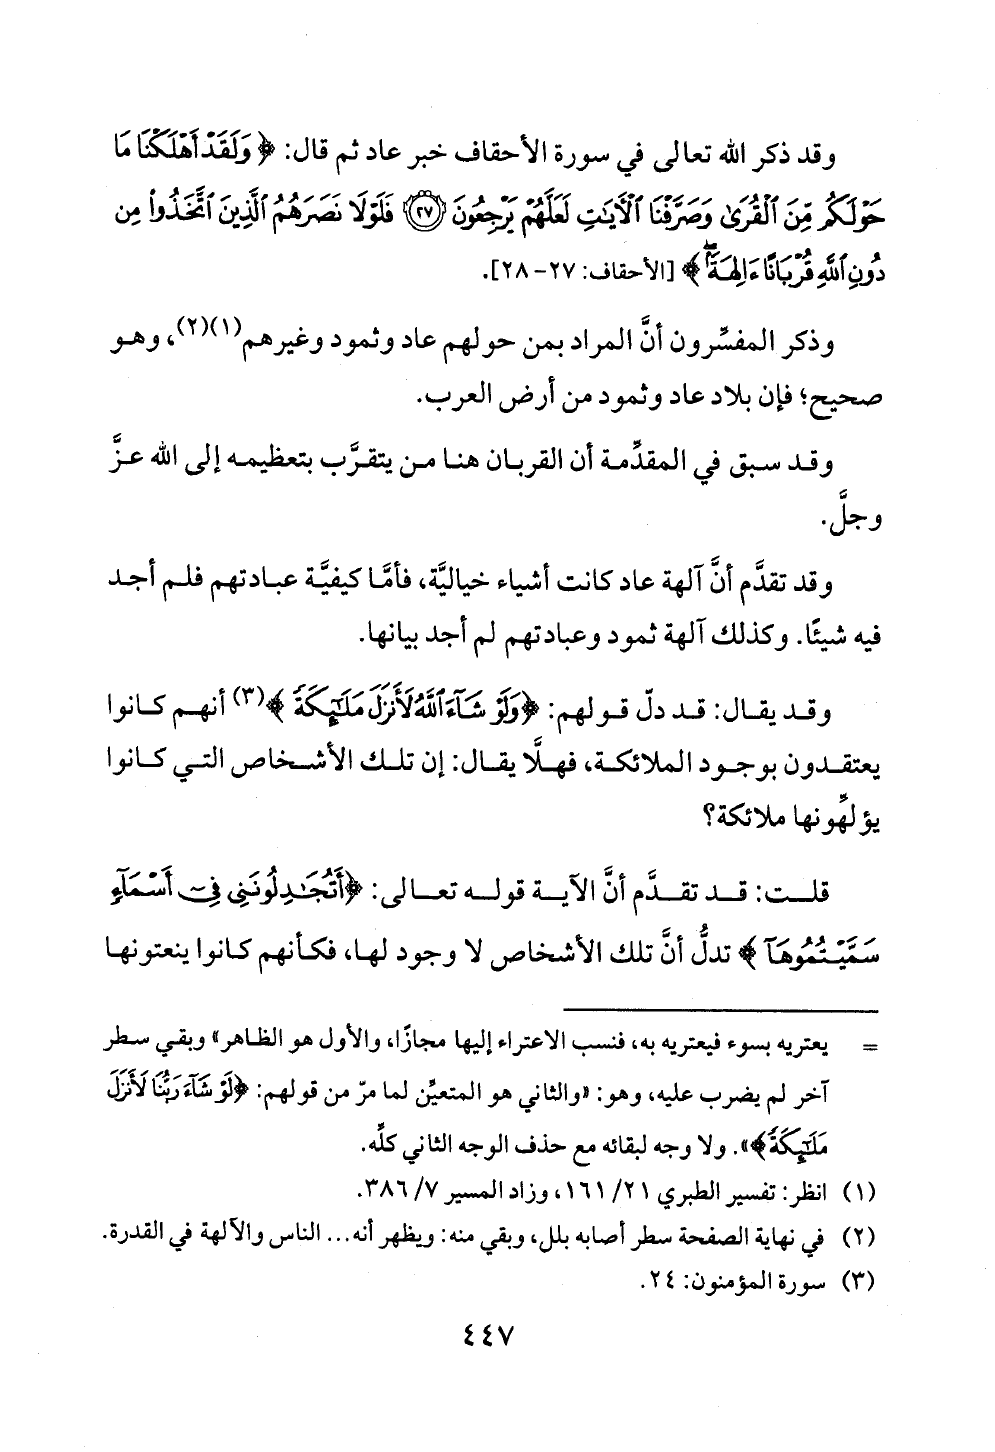 وقد ذكر الله تعالى في سورة الأحقاف خبر عاد ثم قال: ﴿وَلَقَدْ أَهْلَكْنَا مَا
حَوْلَكُم مِّنَ ٱلْقُرَىٰ وَصَرَّفْنَا ٱلْآيَـٰتِ لَعَلَّهُمْ يَرْجِعُونَ ٢٧ فَلَوْلَا نَصَرَهُمُ ٱلَّذِينَ ٱتَّخَذُوا۟ مِن
دُونِ ٱللَّهِ قُرْبَانًا ءَالِهَةًۢ﴾ [الأحقاف: ٢٧-٢٨].
وذكر المفسِّرون أنَّ المراد بمن حولهم عاد وثمود وغيرهم(١)(٢)، وهو
صحيح؛ فإن بلاد عاد وثمود من أرض العرب.
وقد سبق في المقدِّمة أن القربان هنا من يتقرَّب بتعظيمه إلى الله عزَّ
وجلَّ.
وقد تقدَّم أنَّ آلهة عاد كانت أشياء خياليَّة، فأمَّا كيفيَّة عبادتهم فلم أجد
فيه شيئًا. وكذلك آلهة ثمود وعبادتهم لم أجد بيانها.
وقد يقال: قد دلّ قولهم: ﴿وَلَوْ شَآءَ ٱللَّهُ لَأَنزَلَ مَلَـٰٓئِكَةً﴾(٣) أنهم كانوا
يعتقدون بوجود الملائكة، فهلَّا يقال: إن تلك الأشخاص التي كانوا
يؤلهِّونها ملائكة؟
قلت: قد تقدَّم أنَّ الآية قوله تعالى: ﴿أَتُجَـٰدِلُونَنِى فِىٓ أَسْمَآءٍ
سَمَّيْتُمُوهَآ﴾ تدلُّ أنَّ تلك الأشخاص لا وجود لها، فكأنهم كانوا ينعتونها
= يعتريه بسوء فيعتريه به، فنسب الاعتراء إليها مجازًا، والأول هو الظاهر» وبقي سطر
آخر لم يضرب عليه، وهو: «والثاني هو المتعيِّن لما مرّ من قولهم: ﴿لَوْ شَآءَ رَبُّنَا لَأَنزَلَ
مَلَـٰٓئِكَةً﴾». ولا وجه لبقائه مع حذف الوجه الثاني كلِّه.
(١) انظر: تفسير الطبري ٢١/ ١٦١، وزاد المسير ٧/ ٣٨٦.
(٢) في نهاية الصفحة سطر أصابه بلل، وبقي منه: ويظهر أنه... الناس والآلهة في القدرة.
(٣) سورة المؤمنون: ٢٤.
٤٤٧